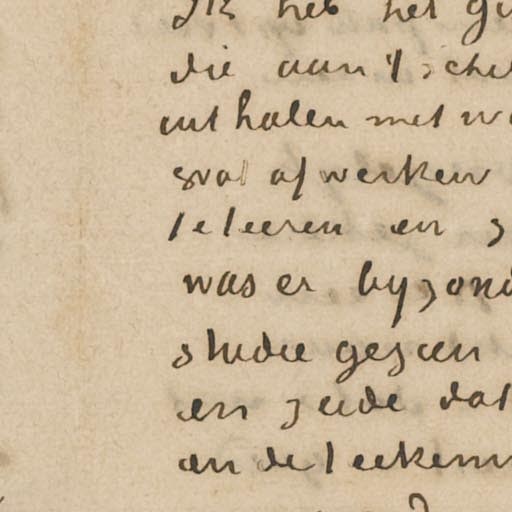 Ik heb het
die aan 't
uithalen met
af werken
te leeren en
was er byzon
studie gezien
en zeide dat
en de teeken